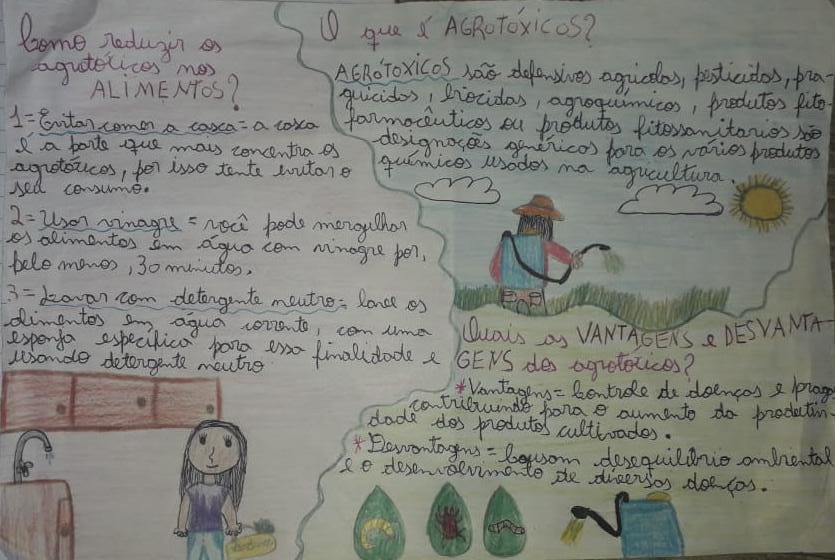 Como reduzir os
agrotóxicos nos
ALIMENTOS?
1= Evitar comer a casca = a casca
é a parte que mais concentra os
agrotóxicos, por isso tente evitar o
seu consumo.
2= Usar vinagre = você pode mergulhar
os alimentos em água com vinagre por,
pelo menos, 30 minutos.
3= Lavar com detergente neutro = lave os
alimentos em água corrente, com uma
esponja específica para essa finalidade e
usando detergente neutro
O que é AGROTÓXICOS?
AGRÓTOXICOS são defensivos agricolas, pesticidas, pra-
guicidas, biocidas, agroquímicos, produtos fito-
farmacêuticos ou produtos fitossanitarios são
designações genéricos para os vários produtos
químicos usados na agricultura.
Quais as VANTAGENS e DESVANTA-
GENS dos agrotóxicos?
*Vantagens = Controle de doenças e pragas
contribuindo para o aumento da produtivi-
dade dos produtos cultivados.
*Desvantagens = Causam desequilíbrio ambiental
e o desenvolvimento de diversas doenças.